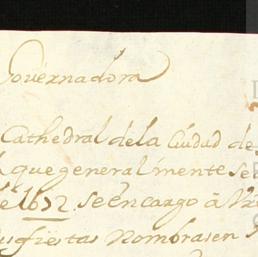 Governadora
Cathedral de la Ciudad de
que generalmente se
de 1672. se encargo â
fiestas nombrasen